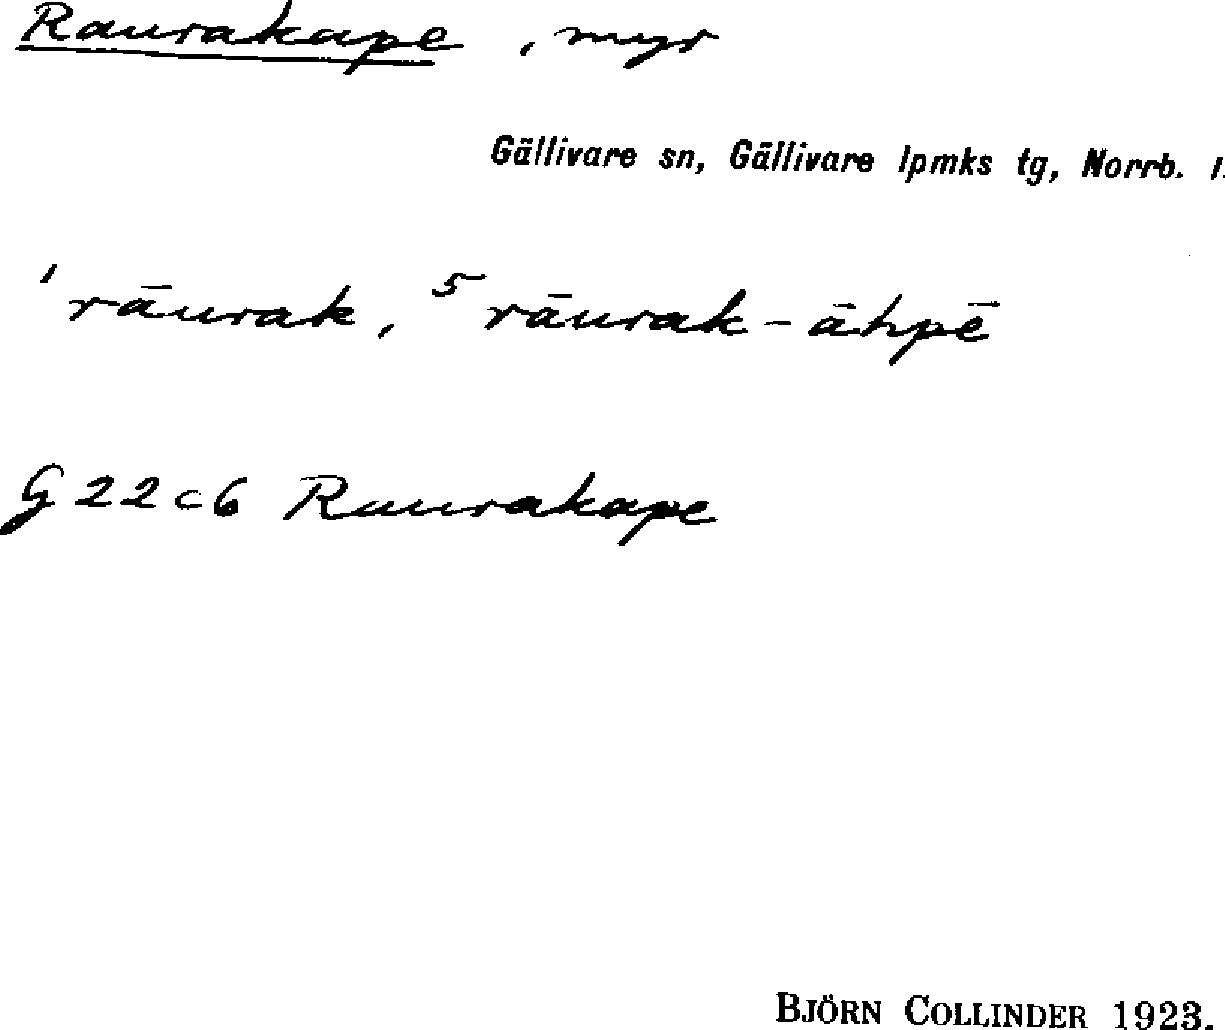 Raurakape, myr
Gällivare sn, Gällivare lpmks tg, Norrb. l.
¹rāurak, ⁵rāurak-āhpē
G 22 c 6 Raurakape
BJÖRN COLLINDER 1923.